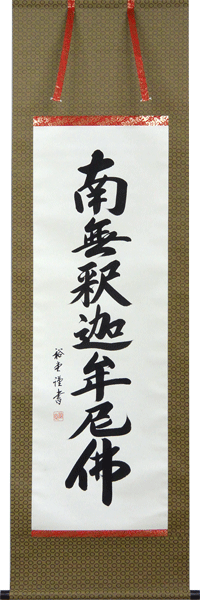 南無釈迦牟尼佛
裕

謹書